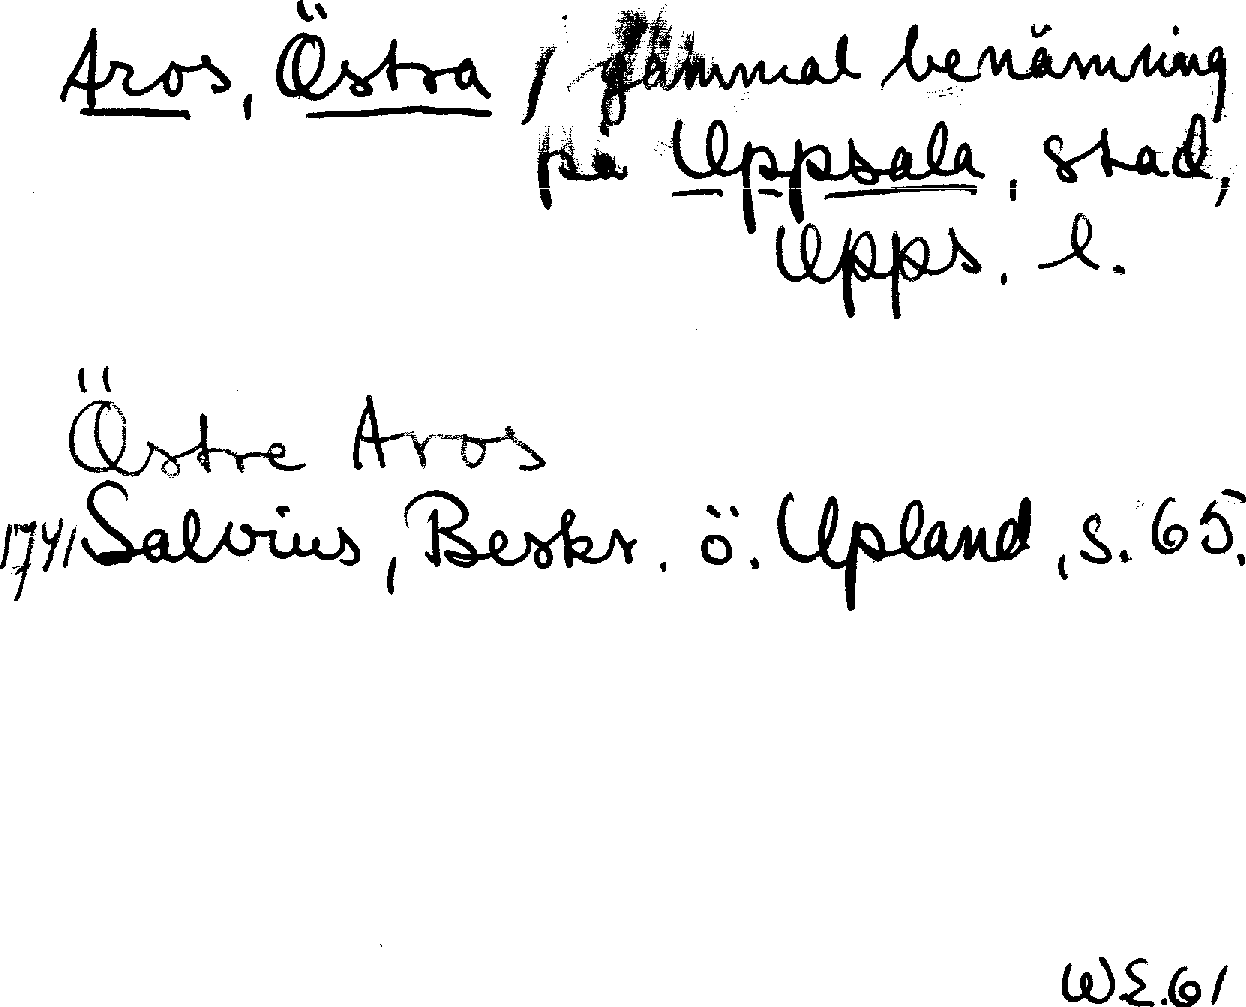 Aros, Östra, gammal benämning
på Uppsala, stad,
Upps. l.
Östre Aros
1741 Salvius, Beskr. ö. Upland, s. 65.
WE.61